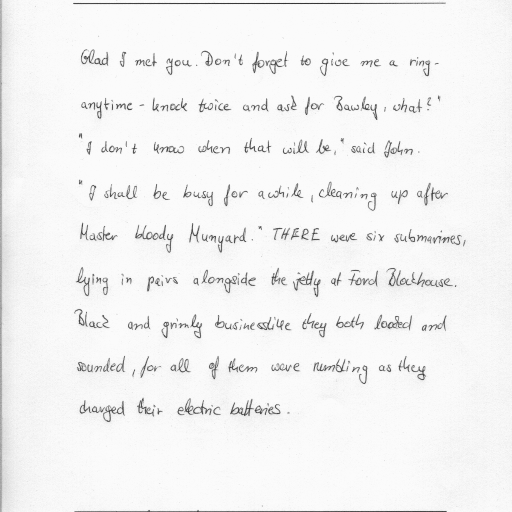 Glad I met you. Don't forget to give me a ring-
anytime - knock twice and ask for Bawley, what?"
"I don't know when that will be," said John.
"I shall be busy for awhile, cleaning up after
Master bloody Munyard." THERE were six submarines,
lying in pairs alongside the jetty at Ford Blockhouse.
Black and grimly businesslike they both looked and
sounded, for all of them were rumbling as they
charged their electric batteries.